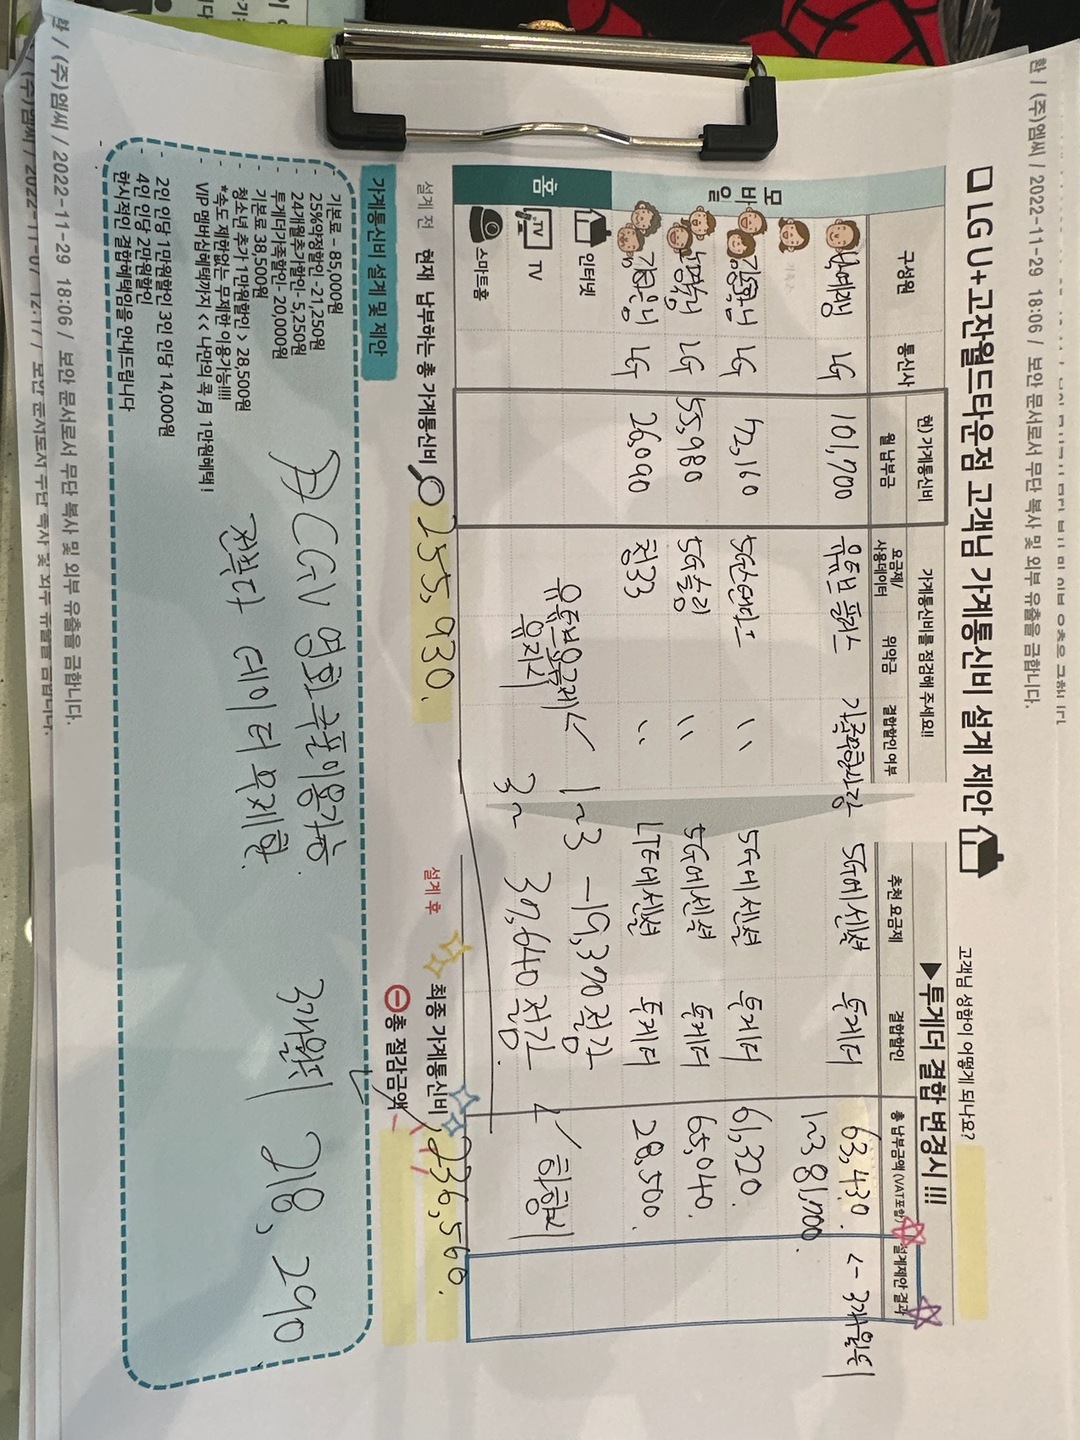 한 / (주)엠씨 / 2022-11-29 18:06 / 보안 문서로서 무단 복사 및 외부 유출을 금합니다.
LG U+고잔월드타운점 고객님 가계통신비 설계 제안
고객님 성함이 어떻게 되나요?
가계통신비를 점검해 주세요!!
▶투게더 결합 변경시 !!!
구성원
통신사
현) 가계통신비
월 납부금
요금제/
사용데이터
위약금
결합할인 여부
추천 요금제
결합할인
총 납부금액 (VAT포함)
설계제안 결과
모바일
LG
101,700
유튜브 플러스
가족무한사랑
5G에센셜
투게더
63,430.
<- 3개월뒤
1~3 81,700.
LG
72,160
5G스탠다드
〃
5G에센셜
투게더
61,320.
LG
55,980
5G슬림
〃
5G에센셜
투게더
65,040.
LG
26,090
청33
〃
LTE에센셜
투게더
28,500.
홈
인터넷
TV
스마트홈
유튜브요금제
유지시
1~3 -19,370절감
3~ 37,640절감.
설계 전
현재 납부하는 총 가계통신비
255,930.
설계 후
최종 가계통신비
236,560.
총 절감금액
가계통신비 설계 및 제안
기본료 – 85,000원
25%약정할인 -21,250원
24개월추가할인- 5,250원
투게더가족할인- 20,000원
기본료 38,500원
청소년 추가 1만원할인 > 28,500원
*속도 제한없는 무제한 이용가능!!!!
VIP 멤버십혜택까지 << 나만의 콕 月 1만원혜택 !
2인 인당 1만원할인 3인 인당 14,000원
4인 인당 2만원할인
현시점인 결합혜택임을 안내드립니다
CGV 영화쿠폰이용가능.
전부다 데이터 무제한.
3개월뒤 218,290
한 / (주)엠씨 / 2022-11-29 18:06 / 보안 문서로서 무단 복사 및 외부 유출을 금합니다.